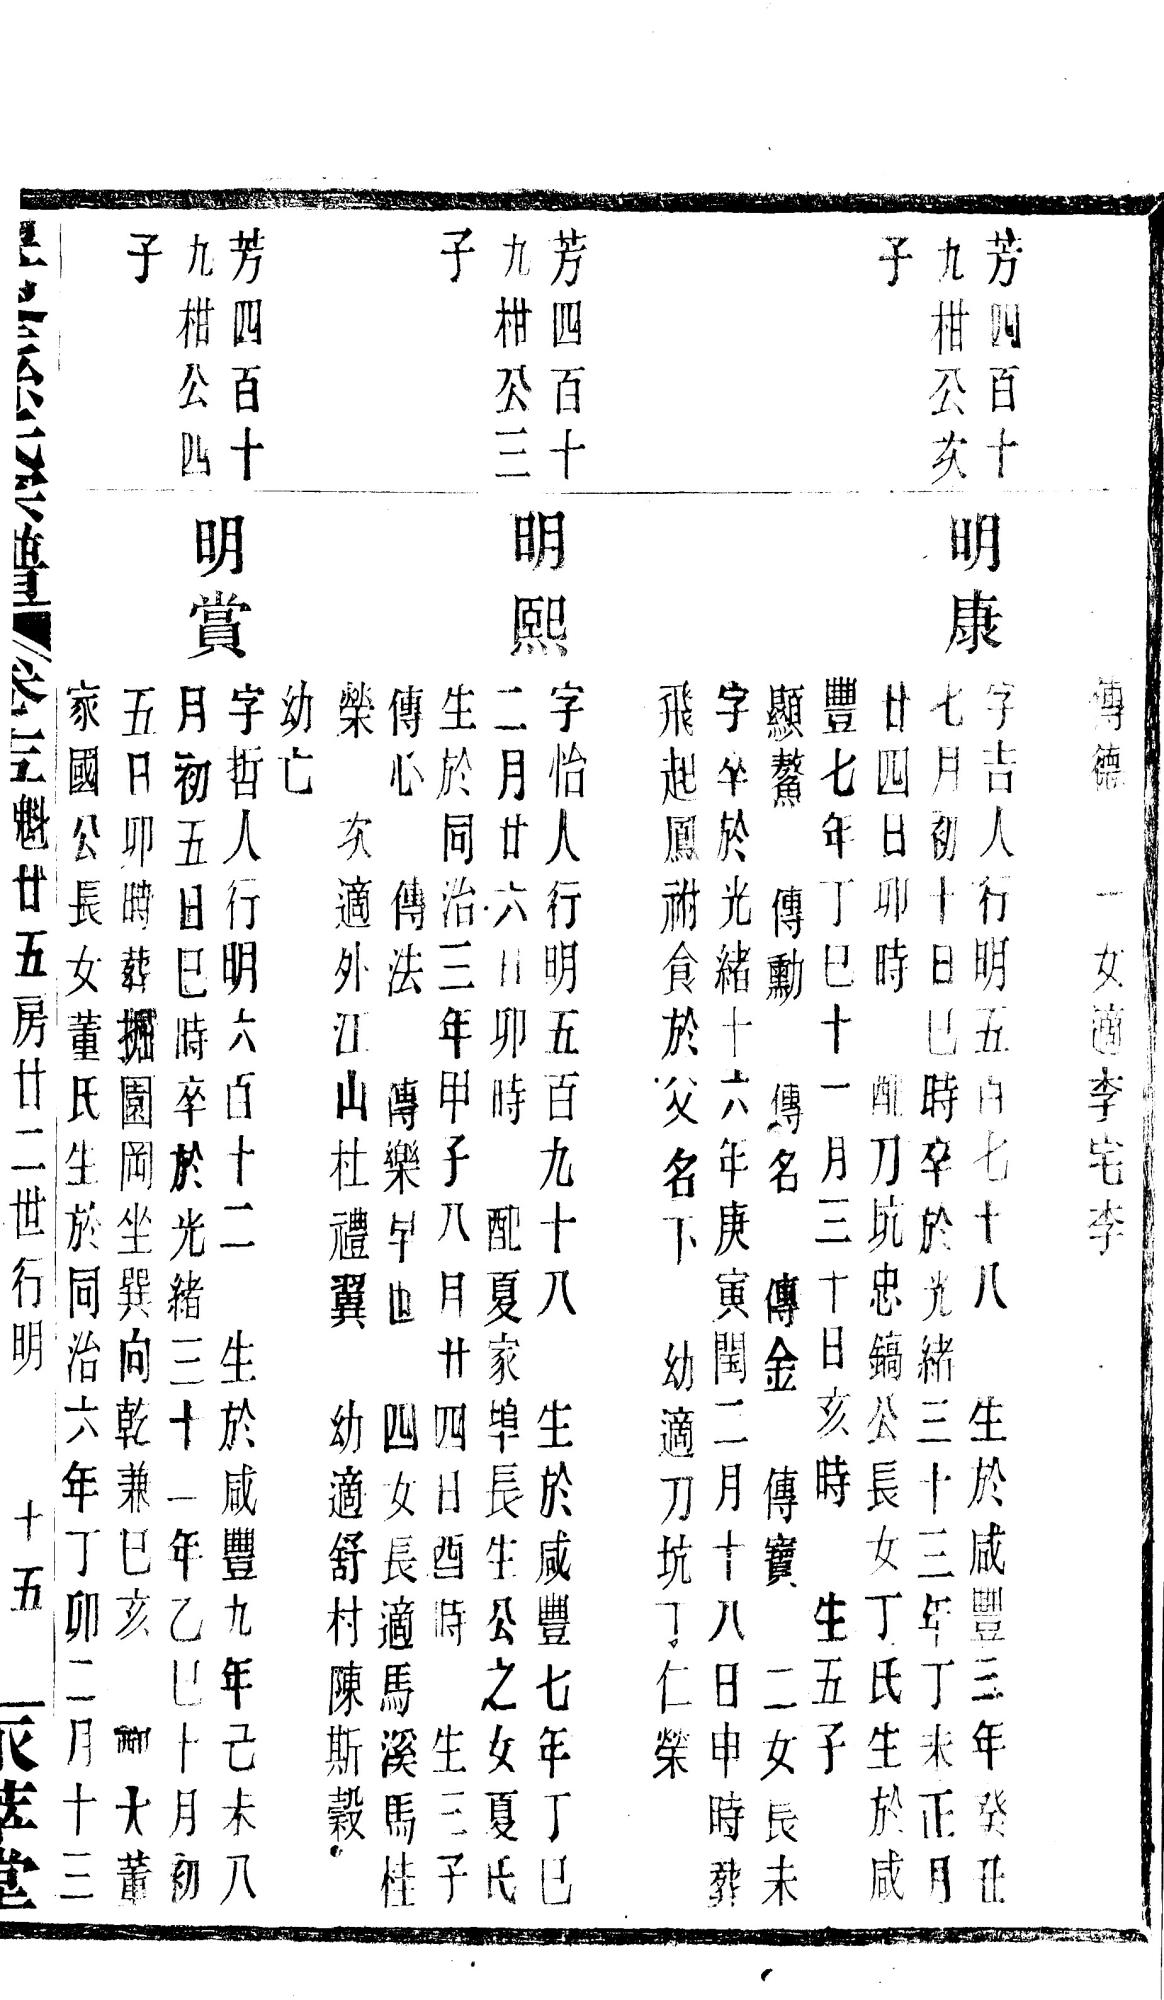 傳德　一女適李宅李
芳四百十
九柑公次
子
明康
字吉人行明五百七十八　生於咸豐三年癸丑
七月初十日巳時卒於光緒三十三年丁未正月
廿四日卯時　配刀坑忠鎬公長女丁氏生於咸
豐七年丁巳十一月三十日亥時　生五子
顯鰲　傳勳　傳名　傳金　傳寶　二女長未
字卒於光緒十六年庚寅閏二月十八日申時葬
飛起鳳祔食於父名下　幼適刀坑丁仁榮
芳四百十
九柑公三
子
明熙
字怡人行明五百九十八　生於咸豐七年丁巳
二月廿六日卯時　配夏家埠長生公之女夏氏
生於同治三年甲子八月廿四日酉時　生三子
傳心　傳法　傳樂早世　四女長適馬溪馬桂
榮　次適外江山杜禮翼　幼適舒村陳斯穀
幼亡
芳四百十
九柑公四
子
明賞
字哲人行明六百十二　生於咸豐九年己未八
月初五日巳時卒於光緒三十一年乙巳十月初
五日卯時葬掘園岡坐巽向乾兼巳亥　大董
家國公長女董氏生於同治六年丁卯二月十三
氏宗譜　卷　魁廿五房廿二世行明　十五　萃堂